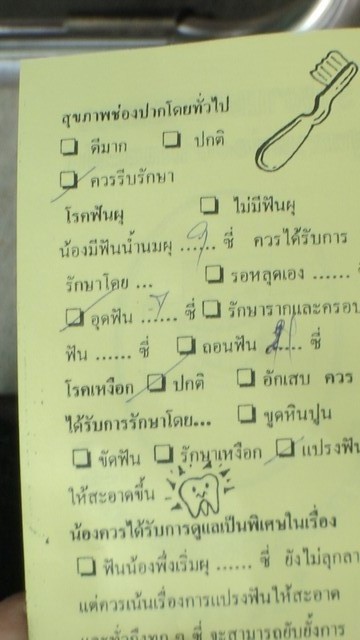 สุขภาพช่องปากโดยทั่วไป
ดีมาก ปกติ
ควรรีบรักษา
โรคฟันผุ ไม่มีฟันผุ
น้องมีฟันน้ำนมผุ ...9... ซี่ ควรได้รับการ
รักษาโดย ... รอหลุดเอง ......
อุดฟัน ...7... ซี่ รักษารากและครอบ
ฟัน ...... ซี่ ถอนฟัน ...2... ซี่
โรคเหงือก ปกติ อักเสบ ควร
ได้รับการรักษาโดย... ขูดหินปูน
ขัดฟัน รักษาเหงือก แปรงฟัน
ให้สะอาดขึ้น
น้องควรได้รับการดูแลเป็นพิเศษในเรื่อง
ฟันน้องพึ่งเริ่มผุ ...... ซี่ ยังไม่ลุกลา
แต่ควรเน้นเรื่องการแปรงฟันให้สะอาด
และทั่วถึงทุก ๆ ซี่ จะสามารถยับยั้งการ